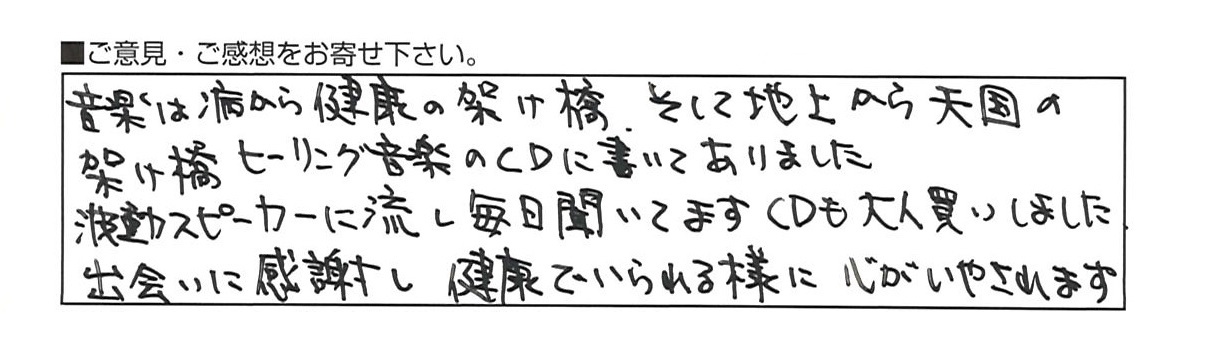 ■ご意見・ご感想をお寄せ下さい。
音楽は病から健康の架け橋.そして地上から天国の
架け橋 ヒーリング音楽のCDに書いてありました
波動スピーカーに流し毎日聞いてます CDも大人買いしました.
出会いに感謝し 健康でいられる様に 心がいやされます